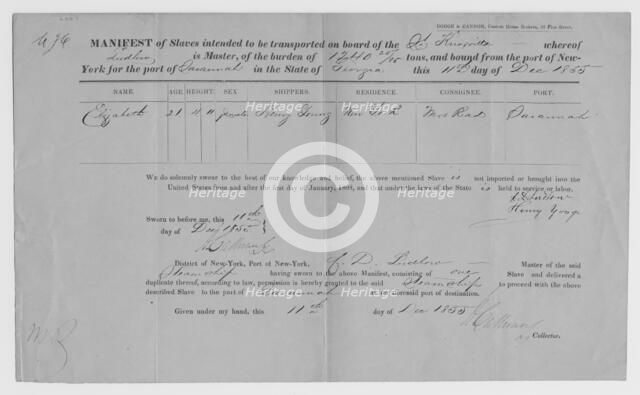 DODGE & CANDON, Custom House Brokers, 69 Pine Street.
MANIFEST of Slaves intended to be transported on board of the St Knoxville whereof
Ludlow is Master, of the burden of 1240 25/95 tons, and bound from the port of New-
York for the port of Savannah in the State of Georgia this 11th day of Dec 1855
NAME. AGE. HEIGHT. SEX SHIPPERS. RESIDENCE. CONSIGNEE. PORT.
Elizabeth 21 4 11 female Henry Young New York Mrs Read Savannah
WE do solemnly swear to the best of our knowledge and belief, the above mentioned Slave is not imported or brought into the
United States from and after the first day of January, 1808, and that under the laws of the State is held to service or labor.
C D Ludlow
Henry Yonge
Sworn to before me, this 11th
day of Dec 1855
District of New-York, Port of New-York, C. D. Ludlow Master of the said
Steamship having sworn to the above Manifest, consisting of one Slave and delivered a
duplicate thereof, according to law, permission is hereby granted to the said Steamship to proceed with the above
described Slave to the port of Savannah as the aforesaid port of destination.
Given under my hand, this 11th day of Dec 1855
Collector.
Heritage Images
Heritage Images
Heritage Images
Heritage Images
Heritage Images